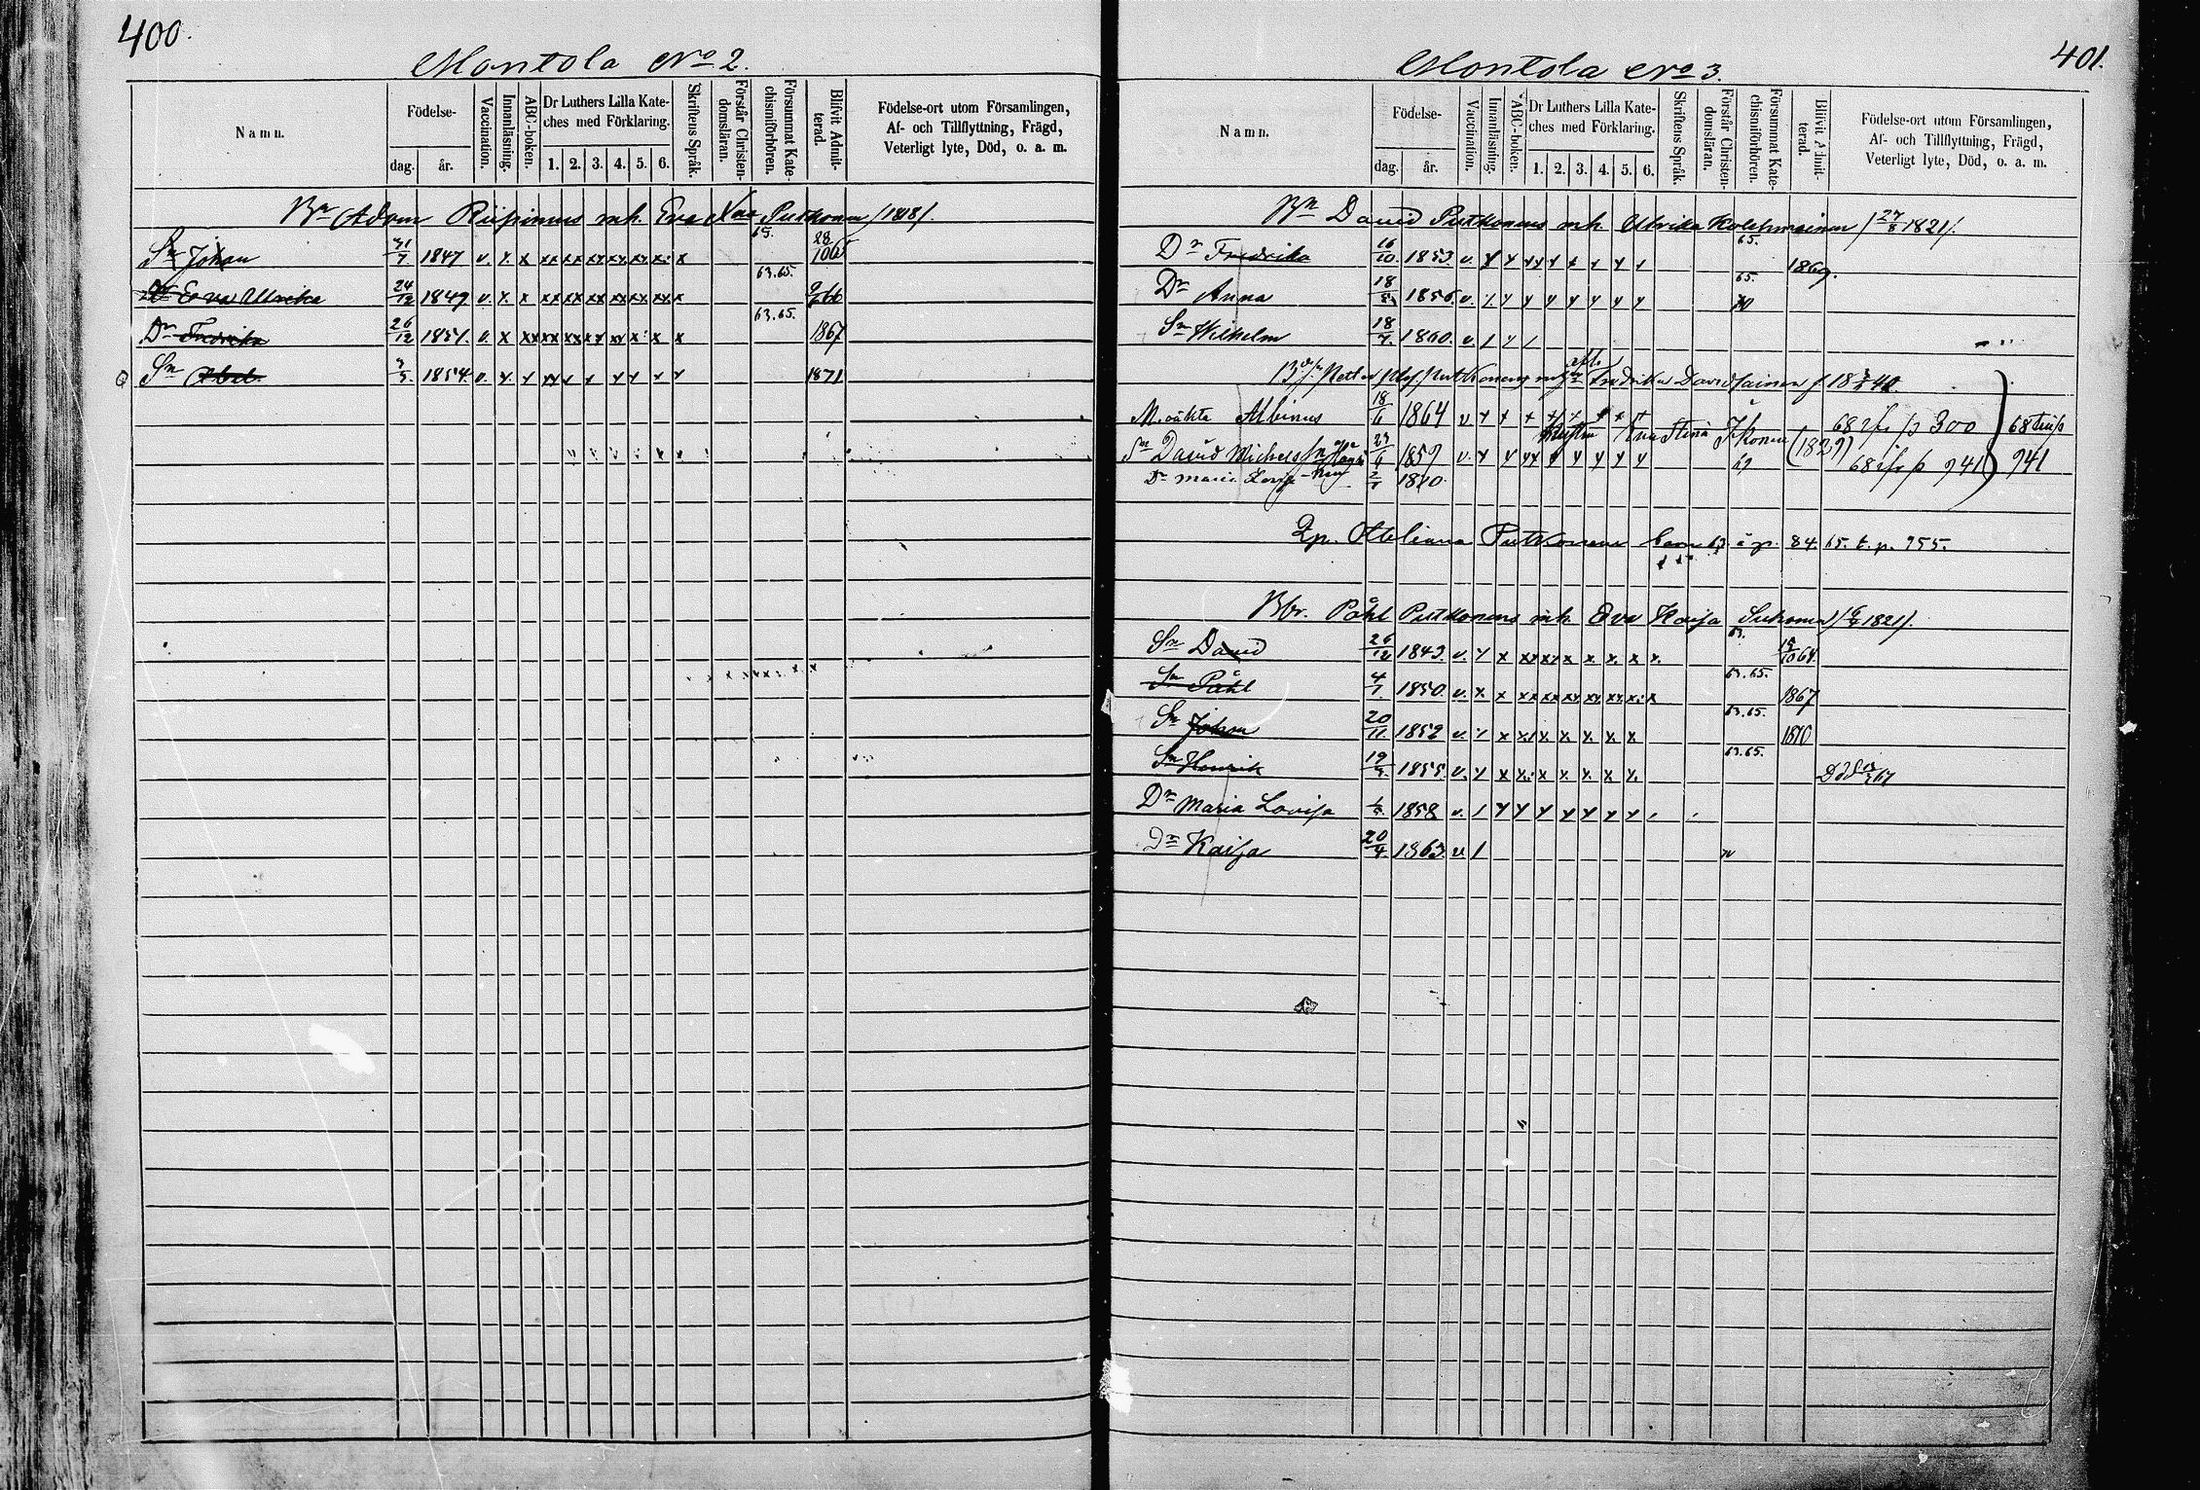 400.
Montola No 2.
Namn.
Födelse-
dag.
år.
Vaccination.
Innanläsning.
ABC-boken.
Dr Luthers Lilla Kate-
ches med Förklaring.
1. 2. 3. 4. 5. 6.
Skriftens Språk.
Förstår Christen-
domsläran.
Försummat Kate-
chismiförhören.
Blifvit Admit-
terad.
Födelse-ort utom Församlingen,
Af- och Tillflyttning, Frägd,
Veterligt lyte, Död, o. a. m.
Bn Adam Riipinens mh. Eva Putkonen /1818/.
Sn Johan 31/7 1847 v. x x xx xx xx xx xx x: x 65. 28/10 65
Dr Eva Ulrika 24/12 1849 v. x x xx xx xx xx xx xx x 63.65. 9/6 66
Dr Fredrika 26/12 1851 v. x xx xx xx xx xx x: x x 63.65. 1867
Sn Abel 3/5. 1854 v. x x xx x x xx x x x 1871
401.
Montola No 3.
Namn.
Födelse-
dag.
år.
Vaccination.
Innanläsning.
ABC-boken.
Dr Luthers Lilla Kate-
ches med Förklaring.
1. 2. 3. 4. 5. 6.
Skriftens Språk.
Förstår Christen-
domsläran.
Försummat Kate-
chismiförhören.
Blifvit Admit-
terad.
Födelse-ort utom Församlingen,
Af- och Tillflyttning, Frägd,
Veterligt lyte, Död, o. a. m.
Bn David Putkonens mh. Ulrika Kolehmainen /27/8 1821/.
Dr Fredrika 16/10. 1853 v. x x xx x x x x x 65. 1869.
Dr Anna 18/5 1856. v. x x x x x x x x 65. 70
Sn Wilhelm 18/7. 1860. v. / x /
Fredrika Davidsainen f 18 3/8 40
M. oäkta Albinus 18/6 1864 v x x x x x x x x 68 ifr p 300 68 till p
Hustru Eva Stina Ikonen (1829)
Sn David Michelss 23/6 1859 v. x x xx x x x x x 69 68 ifr p 941 941
Dr Maria Lovisa 1870
Otteliana Putkonens barn 63 å p. 84. 65. t. p. 955.
Bbr. Påhl Putkonens mh. Eva Kaisa Suhonen /1821/.
Sn David 26/12 1843. v. x x xx xx x x x. x x. 63. 15/10 64.
Sn Påhl 4/7. 1850. v. x x xx xx xx xx xx x: x 63.65. 1867
Sn Johan 20/11 1852 v. x x xx x x. x x x 63.65. 1870
Sn Henrik 19/5. 1855. v. x x x: x x x. x x. 63.65. Död 67
Dr Maria Lovisa 1858 v. / x x x x x x x
Dr Kaisa 20/4 1863 v. /